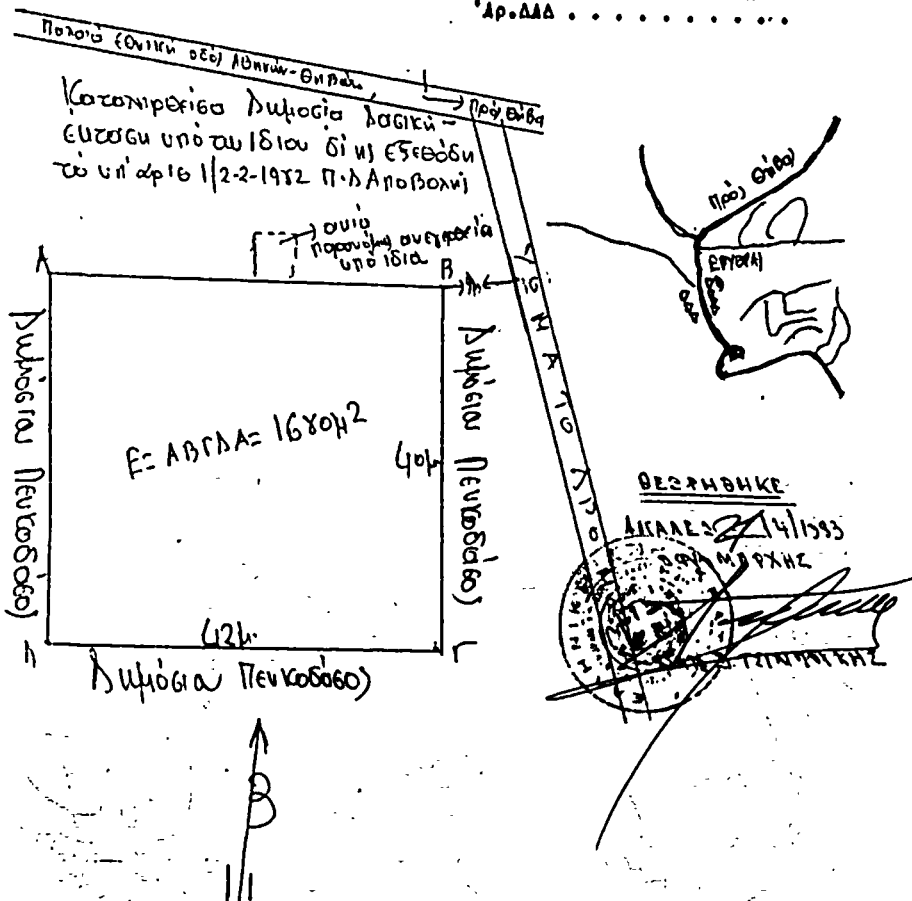 Ἀρ. ΔΑΔ . . . . . . . . . .
Παλαιά Εθνική οδός Αθηνών-Θηβών
Πρός Θήβα
Καταληφθείσα Δημοσία Δασική-
έκτασις υπό του ιδίου δι' ης εξεδόθη
το υπ' αριθ 1/2-2-1982 Π.Δ Αποβολής
παρανόμως ανεγερθεία
υπό ιδία
Α
Β
Δημόσιον Πευκοδάσος
Δημόσιον Πευκοδάσος
Ε= ΑΒΓΔΑ= 1680μ2
40μ
42μ.
Δ
Γ
Δημόσιον Πευκοδάσος
Πρός Θήβας
ΕΡΥΘΡΑΙ
ΘΕΩΡΗΘΗΚΕ
ΑΙΓΑΛΕΩ 4/1993
Β